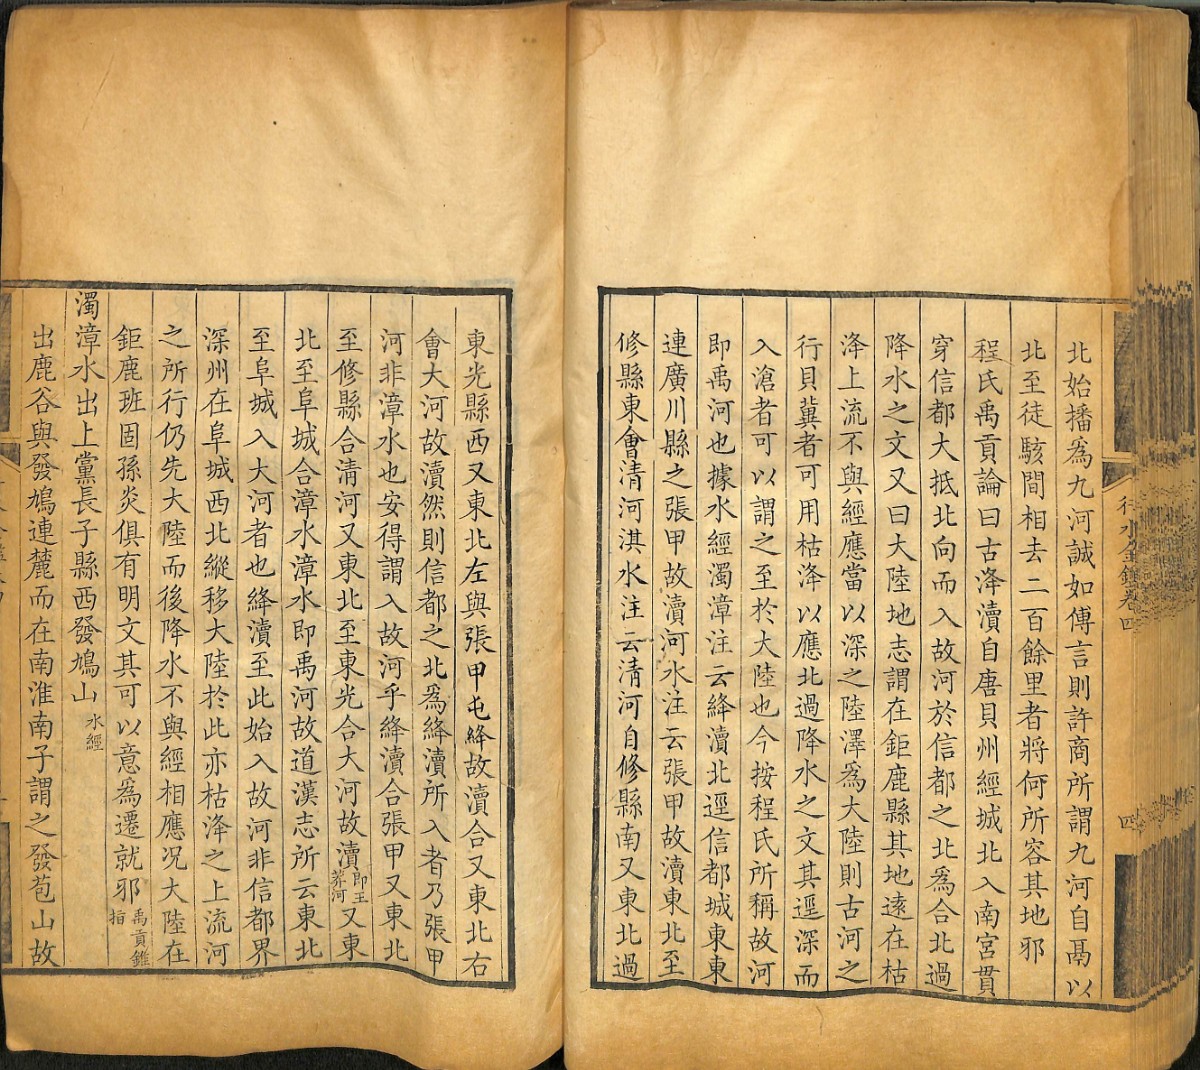 行水金鑑卷四
四
北始播爲九河誠如傳言則許商所謂九河自鬲以
北至徒駭間相去二百餘里者將何所容其地邪
程氏禹貢論曰古洚瀆自唐貝州經城北入南宮貫
穿信都大抵北向而入故河於信都之北爲合北過
降水之文又曰大陸地志謂在鉅鹿縣其地遠在枯
洚上流不與經應當以深之陸澤爲大陸則古河之
行貝冀者可用枯洚以應北過降水之文其逕深而
入滄者可以謂之至於大陸也今按程氏所稱故河
即禹河也據水經濁漳注云絳瀆北逕信都城東東
連廣川縣之張甲故瀆河水注云張甲故瀆東北至
修縣東會清河淇水注云清河自修縣南又東北過
東光縣西又東北左與張甲屯絳故瀆合又東北右
會大河故瀆然則信都之北爲絳瀆所入者乃張甲
河非漳水也安得謂入故河乎絳瀆合張甲又東北
至修縣合清河又東北至東光合大河故瀆即王莽河又東
北至阜城合漳水漳水即禹河故道漢志所云東北
至阜城入大河者也絳瀆至此始入故河非信都界
深州在阜城西北縱移大陸於此亦枯洚之上流河
之所行仍先大陸而後降水不與經相應况大陸在
鉅鹿班固孫炎俱有明文其可以意爲遷就邪禹貢錐指
濁漳水出上黨長子縣西發鳩山水經
出鹿谷與發鳩連麓而在南淮南子謂之發苞山故